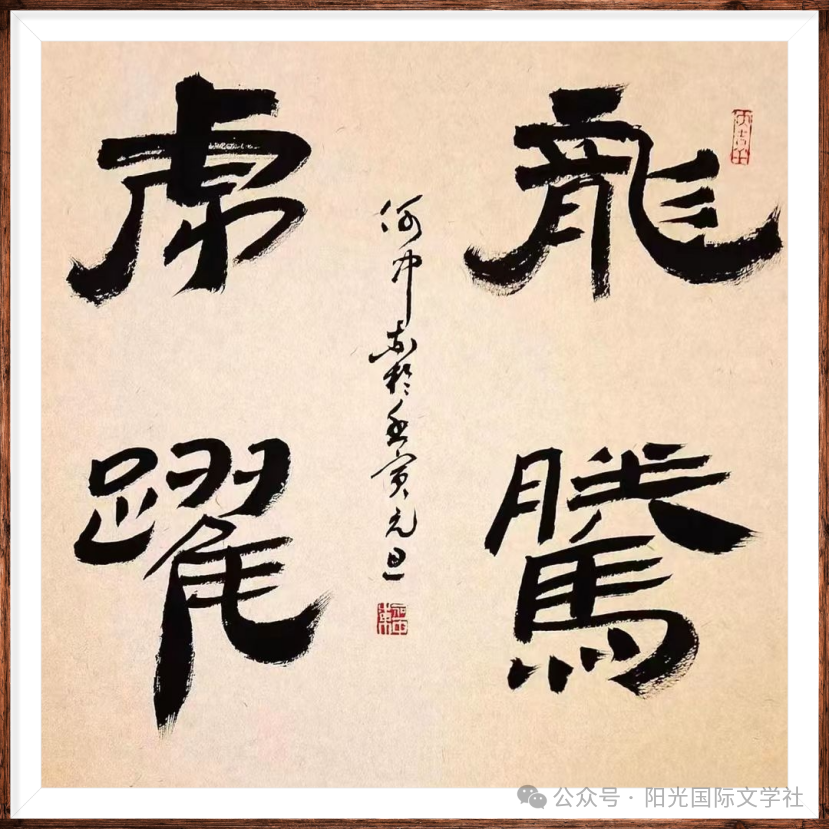 龍騰
虎躍
何中东於壬寅元旦
公众号 · 阳光国际文学社